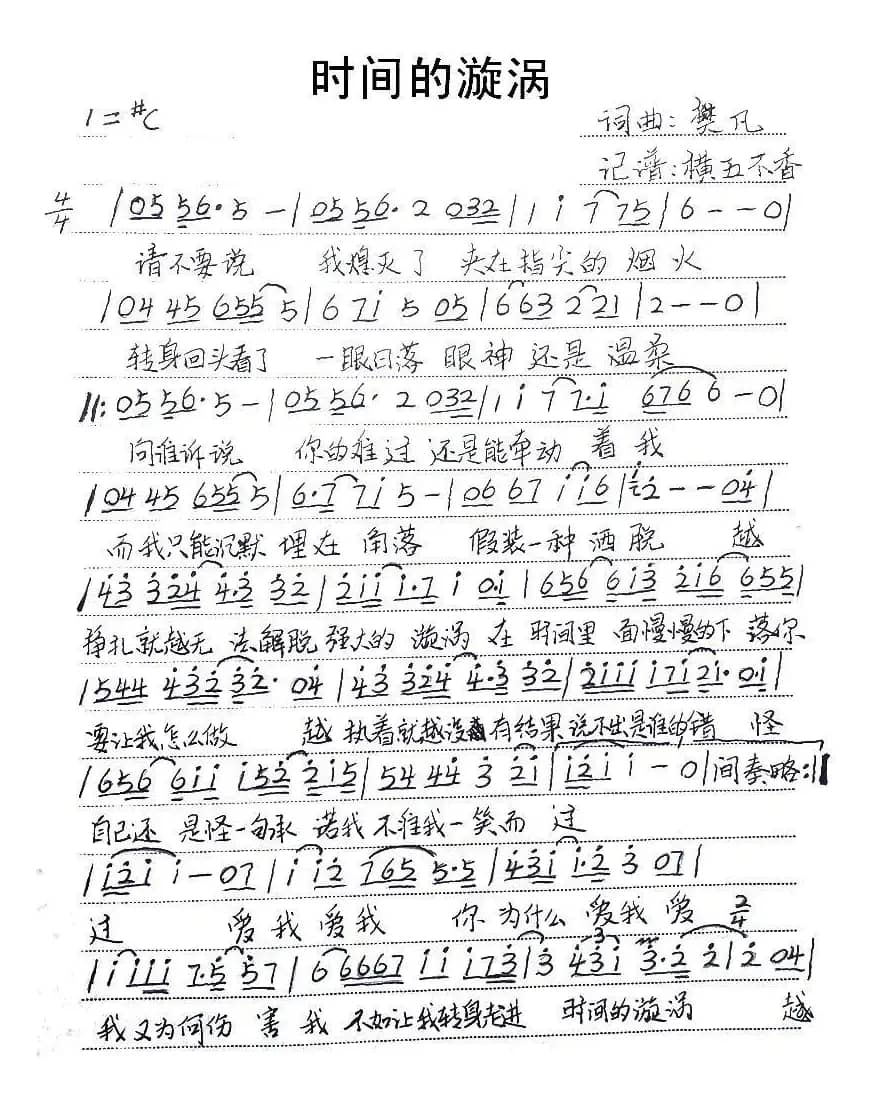 时间的漩涡
1=#C 词曲:樊凡
记谱:横五不香
4/4 |05 56·5 — |05 56·2 032|1 1 7 75|6 - - 0|
请不要说 我熄灭了 夹在指尖的烟火
|04 45 655 5|6 71 5 05|663 221|2 - - 0|
转身回头看了 一眼日落 眼神还是温柔
||:05 56·5 — |05 56·2 032|1 1 7 7·1 676 6 — 0|
问谁诉说 你的难过 还是能牵动 着我
|04 45 655 5|6·7 71 5 — |06 67 1 16|12 - - 04|
而我只能沉默 埋在角落 假装一种洒脱 越
|43 324 4·3 32|211 1·7 1 0·1|656 613 216 655|
挣扎就越无法解脱 强大的漩涡 在时间里面慢慢的下落你
|544 432 32· 04|43 324 4·3 32|2111 17121· 0·1|
要让我怎么做 越执着就越没有结果 说不出是谁的错 怪
|656 611 152 215|54 44 3 21|121 1 — 0|间奏略:||
自己还是怪一句承诺我不难我一笑而过
|121 1 — 07|1 12 765 5·5|431 1·2 3 07|
过 爱我爱我 你为什么爱我爱 2/4
|1 111 7·5 57|6 6667 11 173|3 431 3·2 2|2 04|
我又为何伤害我 不如让我转身走进 时间的漩涡 越